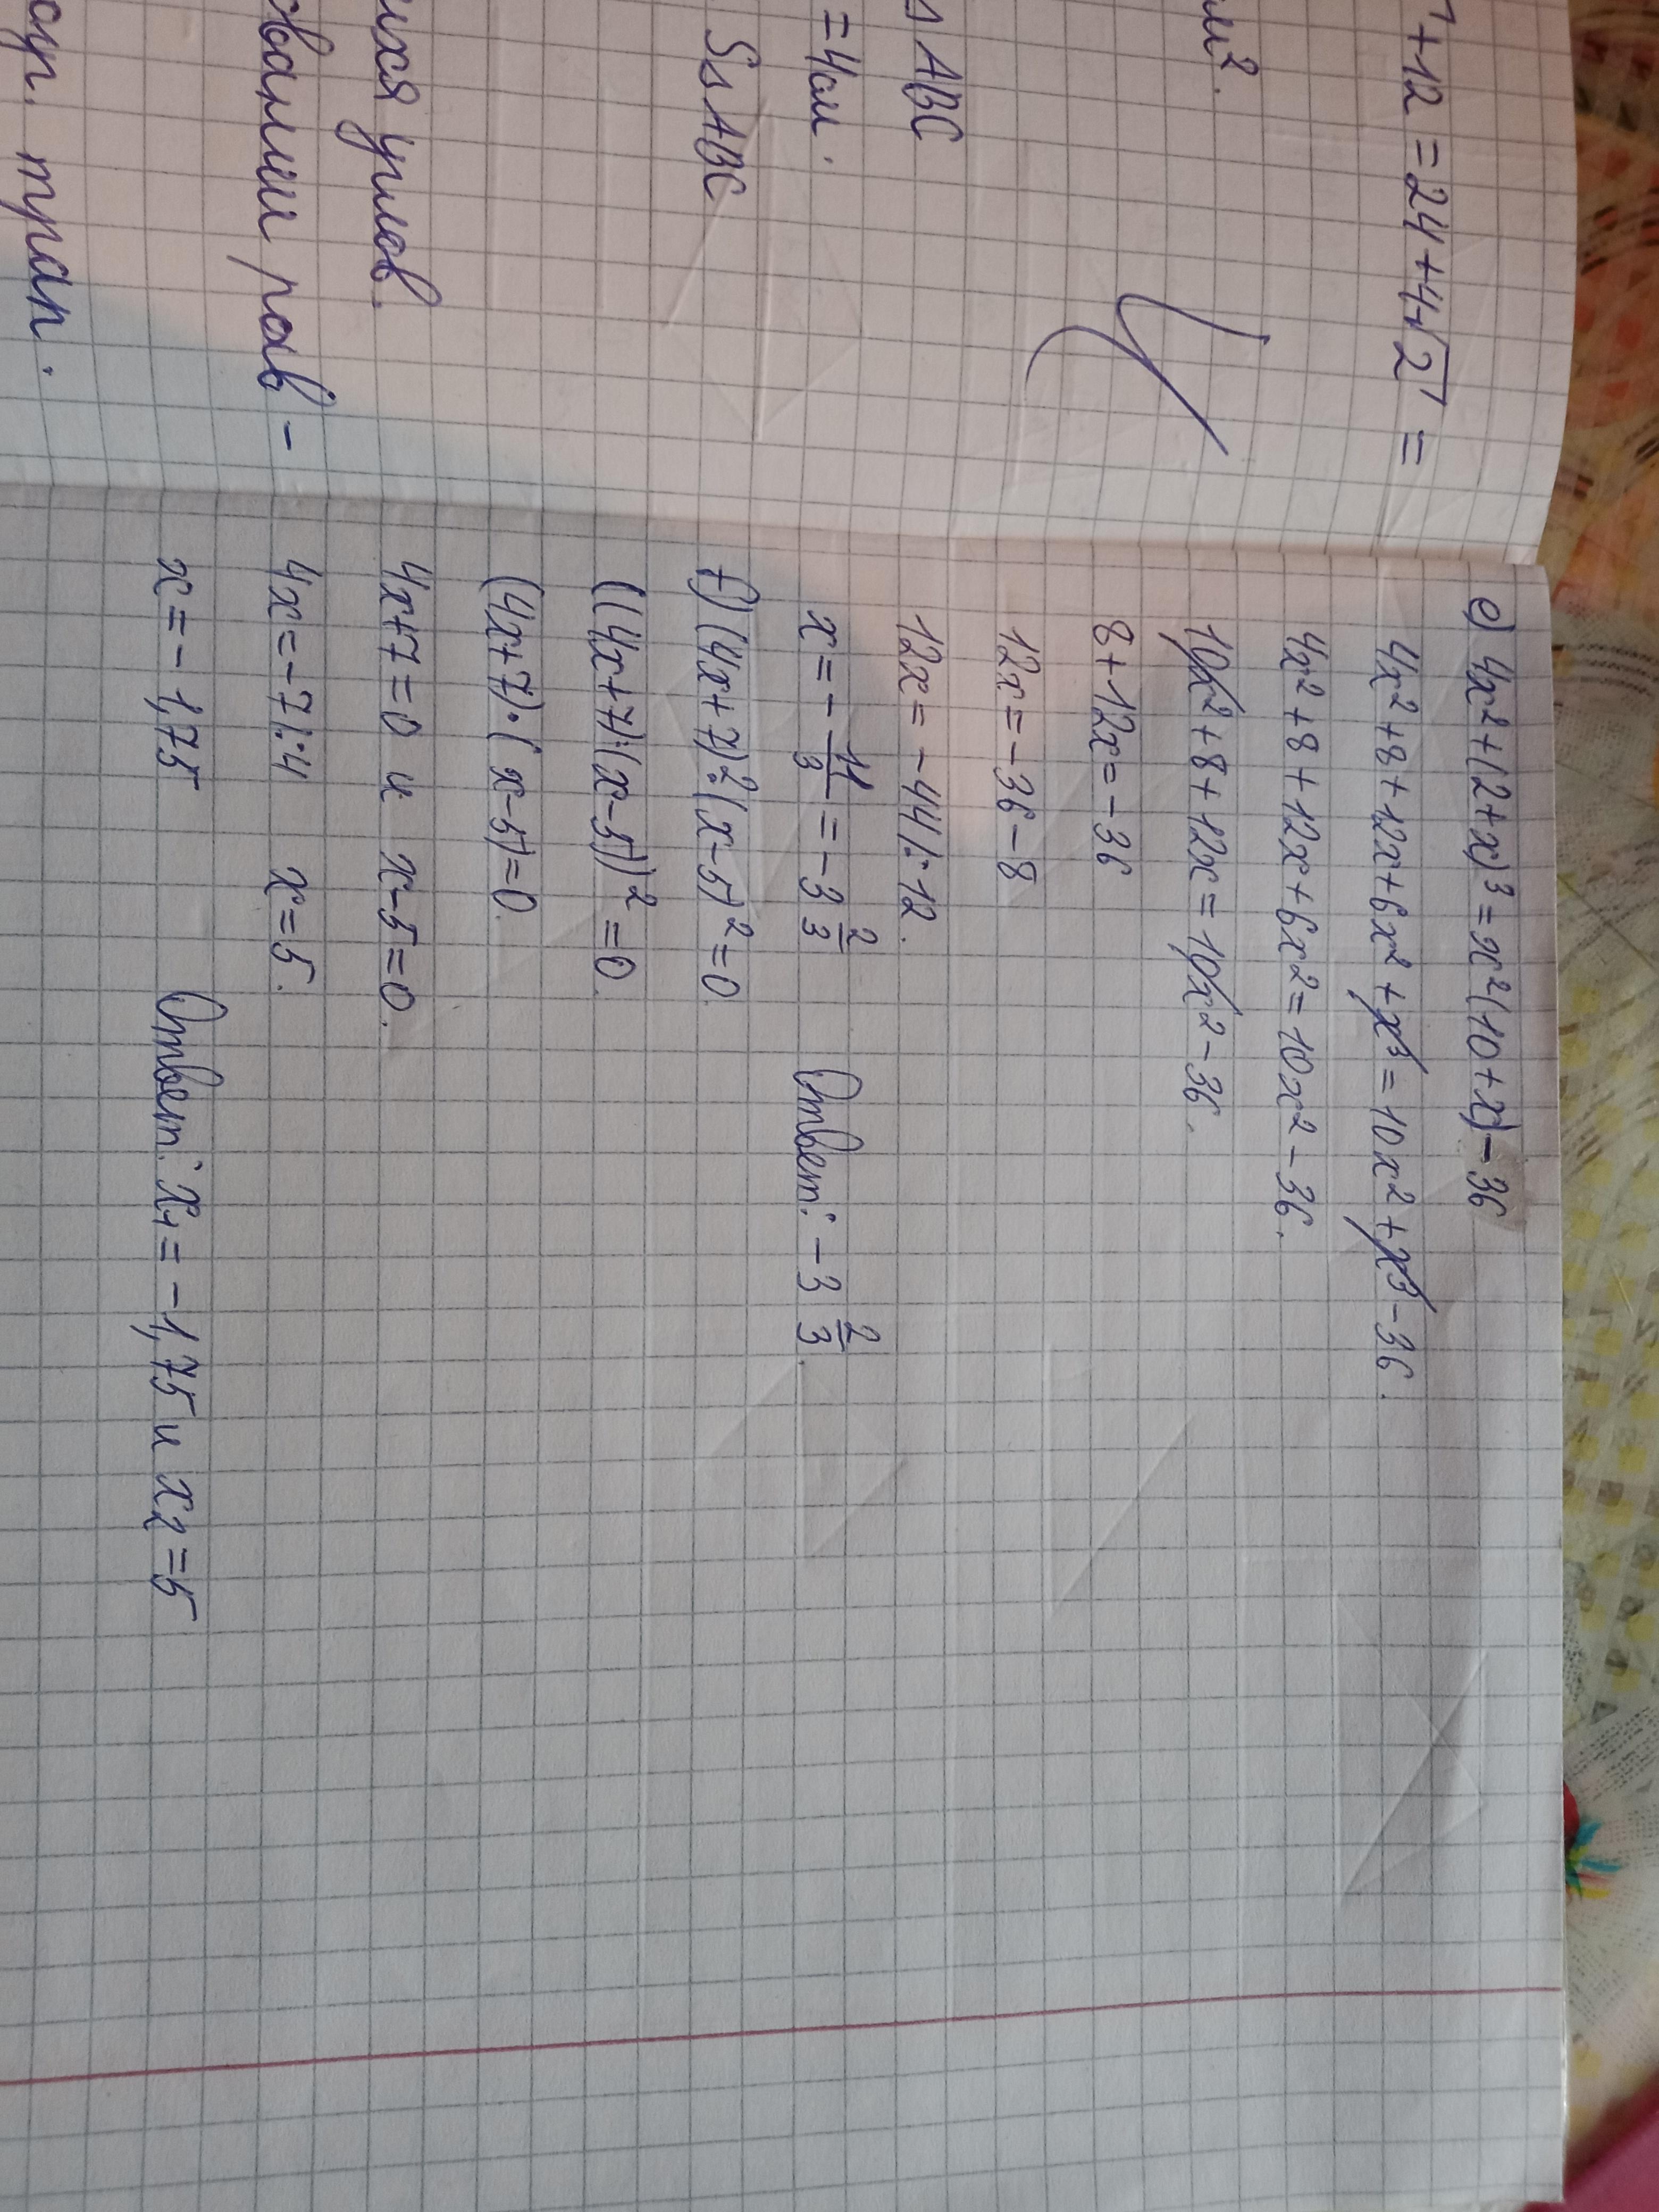 +12=24+4√2=
см².
△ABC
=4см.
S△ABC
ихся углов.
ваnии рав-
трап.
e) 4x²+(2+x)³=x²(10+x)-36
4x²+8+12x+6x²+x³=10x²+x³-36.
4x²+8+12x+6x²=10x²-36.
10x²+8+12x=10x²-36.
8+12x=-36
12x=-36-8
12x=-44|:12.
x=-11/3=-3 2/3 Ответ: -3 2/3.
f) (4x+7)²·(x-5)²=0.
((4x+7)·(x-5))²=0.
(4x+7)·(x-5)=0.
4x+7=0 и x-5=0.
4x=-7|:4 x=5.
x=-1,75 Ответ: x₁=-1,75 и x₂=5